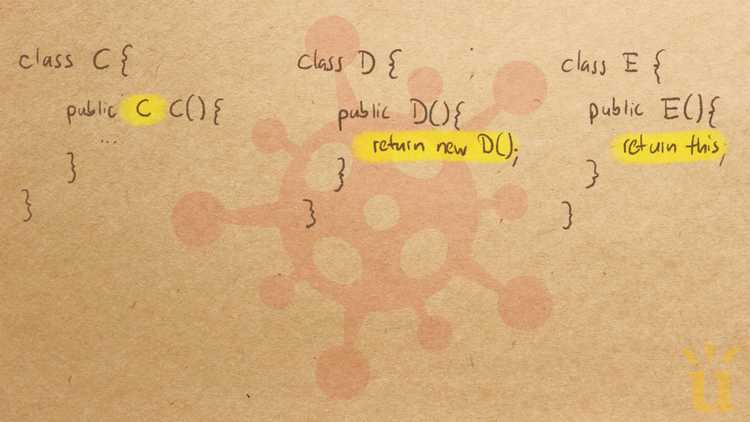 class C {
public C C() {
...
}
}
class D {
public D() {
return new D();
}
}
class E {
public E() {
return this;
}
}
u